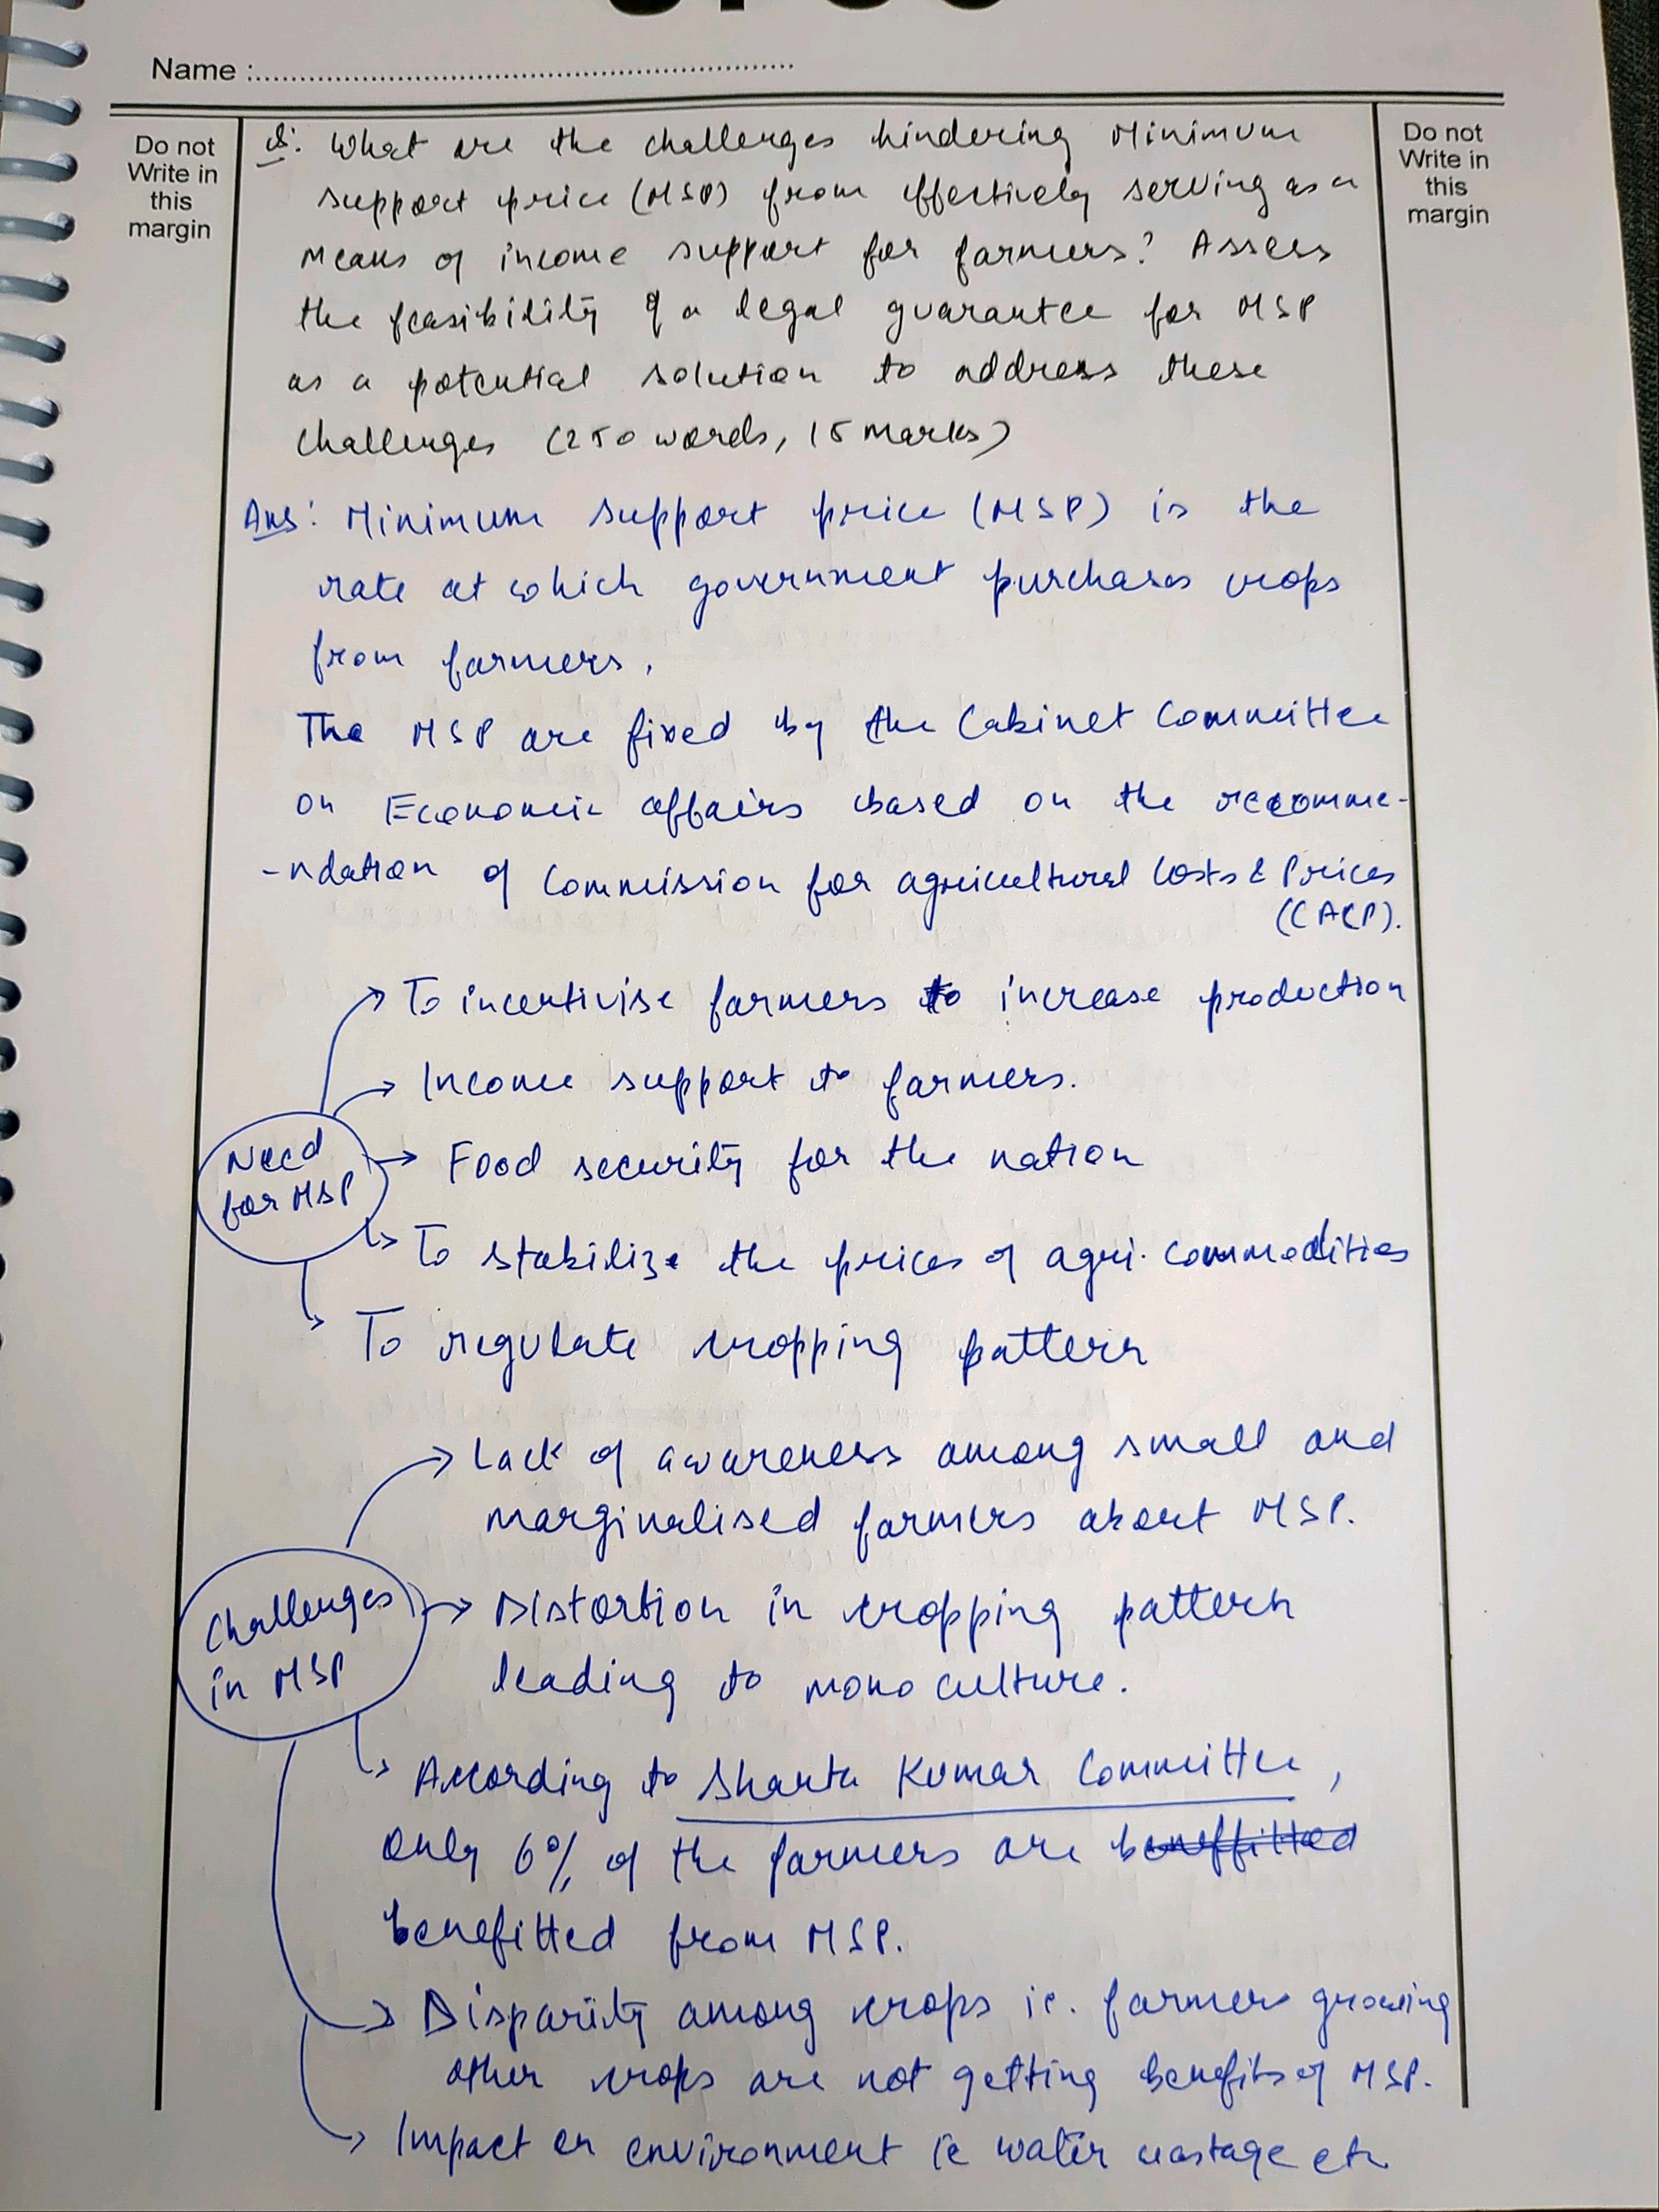 Name :
Do not
Write in
this
margin
Do not
Write in
this
margin
Q: What are the challenges hindering Minimum
support price (MSP) from effectively serving as a
means of income support for farmers? Assess
the feasibility of a legal guarantee for MSP
as a potential solution to address these
challenges (250 words, 15 marks)
Ans: Minimum support price (MSP) is the
rate at which government purchases crops
from farmers.
The MSP are fixed by the Cabinet Committee
on Economic affairs based on the recomme-
-ndation of Commission for agricultural Costs & Prices
(CACP).
Need
for MSP
→ To incentivise farmers to increase production
→ Income support to farmers.
→ Food security for the nation
→ To stabilize the prices of agri. commodities
→ To regulate cropping pattern
Challenges
in MSP
→ Lack of awareness among small and
marginalised farmers about MSP.
→ Distortion in cropping pattern
leading to mono culture.
→ According to Shanta Kumar Committee,
only 6% of the farmers are beneffitted
benefitted from MSP.
→ Disparity among crops ie. farmers growing
other crops are not getting benefits of MSP.
→ Impact on environment ie water wastage etc